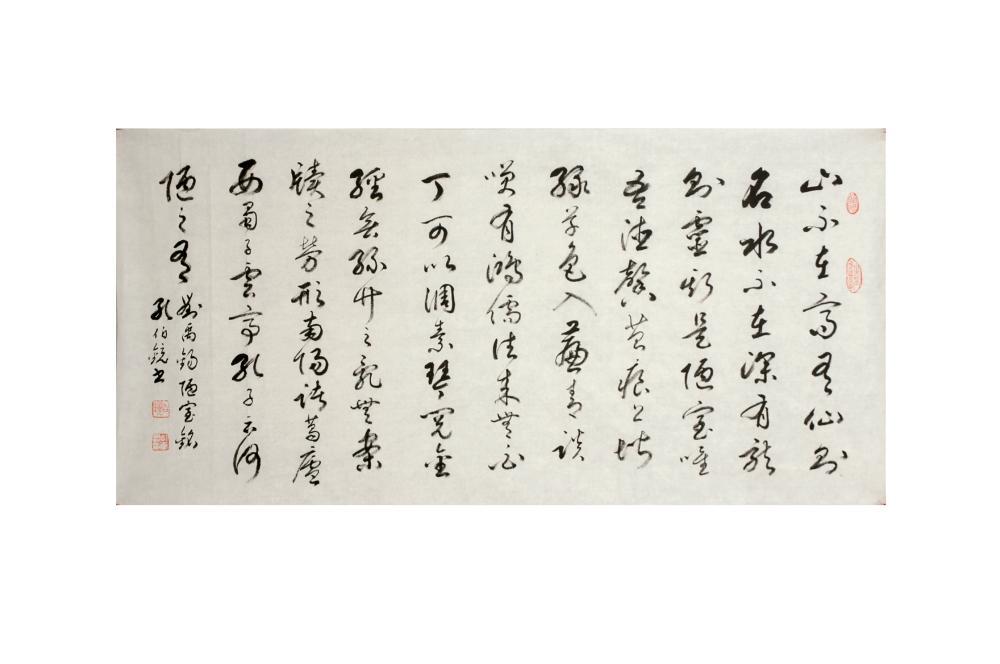 山不在高有仙則
名水不在深有龍
則靈斯是陋室唯
吾德馨苔痕上階
綠草色入簾青談
笑有鴻儒往來無白
丁可以調素琴閱金
經無絲竹之亂無案
牘之勞形南陽諸葛廬
西蜀子雲亭孔子云何
陋之有
劉禹錫陋室銘
孔伯鏡書